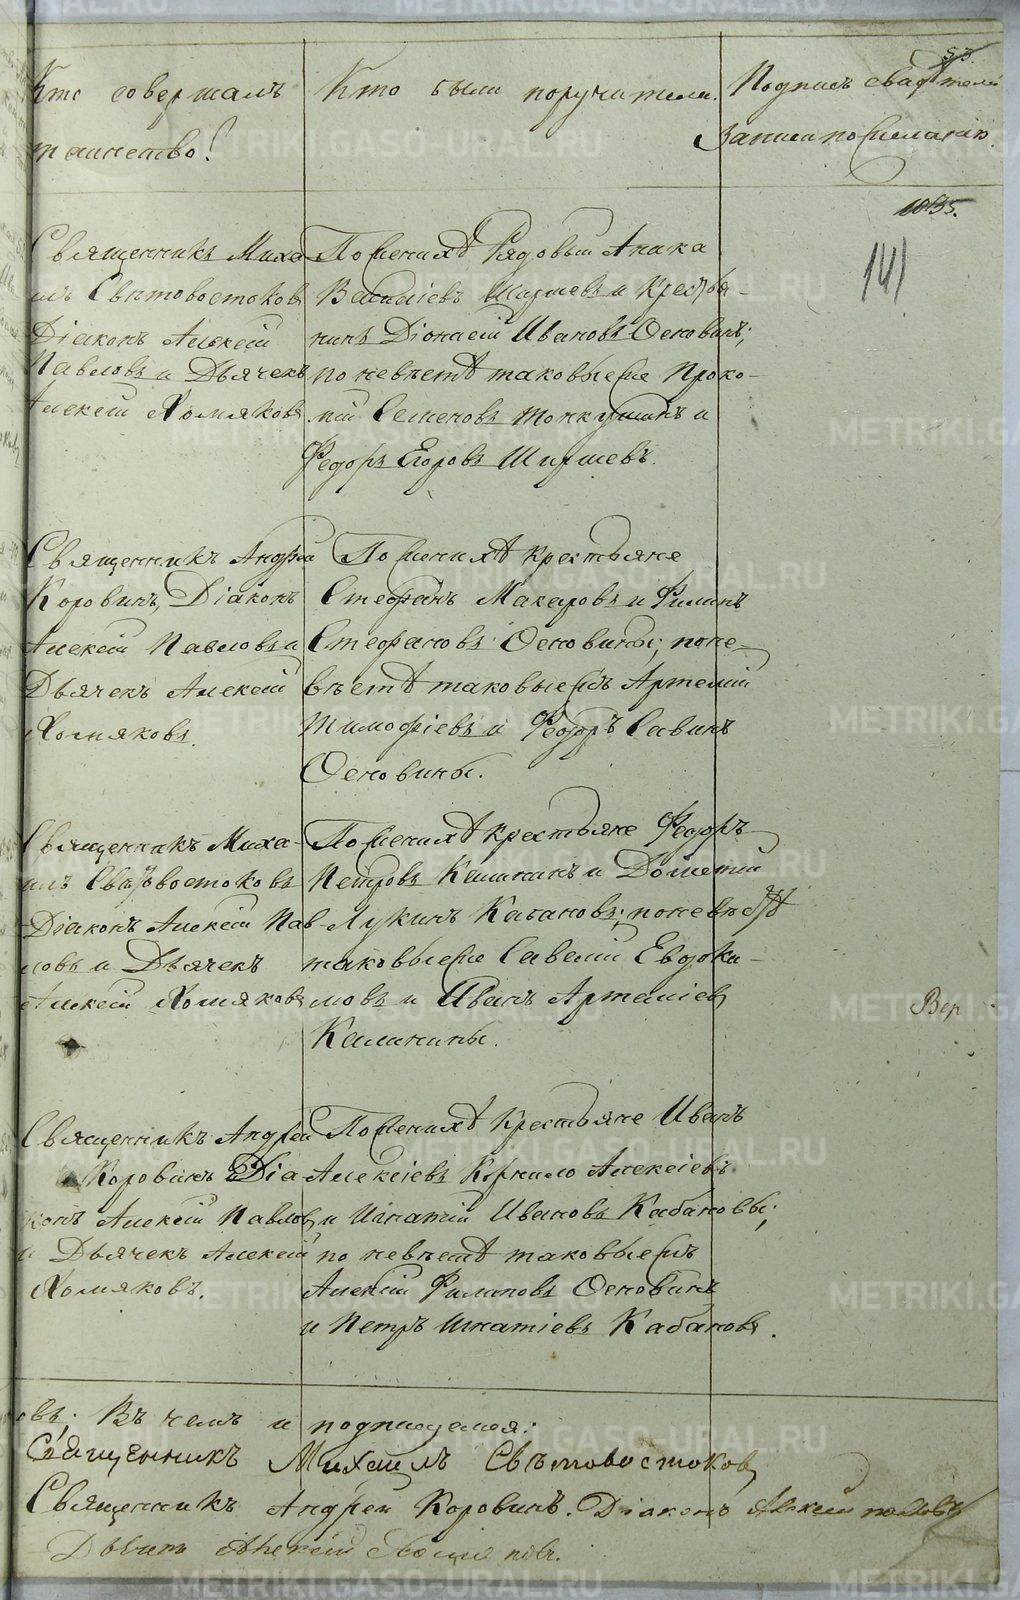 Кто совершалъ
таинство?
Кто были поручители.
Подпись свидѣтелей
Записи по Желанію.
53.
1035.
141
Священникъ Миха
илъ Свѣтовостоковъ
Діаконъ Алексій
Павловъ и Дьячекъ
Алексій Хомяковъ
По Женихѣ Рядовый Аника
Василіевъ Ширшевъ и Крестья-
нинъ Діонисій Ивановъ Основинъ;
по невѣстѣ таковые же Проко-
пій Семеновъ Тонкушинъ и
Федоръ Егоровъ Ширшевъ.
Священникъ Андрей
Коровинъ, Діаконъ
Алексій Павловъ и
Дьячекъ Алексій
Хомяковъ.
По Женихѣ крестьяне
Стефанъ Макаровъ и Филипъ
Стефановъ Основины; по не-
вѣстѣ таковые жъ Артемій
Тимофіевъ и Федоръ Савинъ
Основины.
Священникъ Миха-
илъ Свѣтовостоковъ
Діаконъ Алексій Пав-
ловъ и Дьячекъ
Алексій Хомяковъ
По Женихѣ крестьяне Федоръ
Петровъ Калининъ и Дометій
Лукинъ Кабановъ; по невѣстѣ
таковые же Савелій Евдоки-
мовъ и Иванъ Артеміев
Калинины.
Вер
Священникъ Андрей
Коровинъ Діа
конъ Алексій Павлов
и Дьячекъ Алексій
Хомяковъ.
По Женихѣ Крестьяне Иванъ
Алексіевъ Корнило Алексіевъ
и Игнатій Ивановъ Кабановы;
по невѣстѣ таковые жъ
Алексій Филиповъ Основинъ
и Петръ Игнатіевъ Кабановъ.
овъ; Въ чемъ и подписуемся:
Священникъ Михаилъ Свѣтовостоков
Священникъ Андрей Коровинъ. Діаконъ Алексий Павловъ
Дьячекъ Алексій Хомяковъ.
METRIKI.GASO-URAL.RU